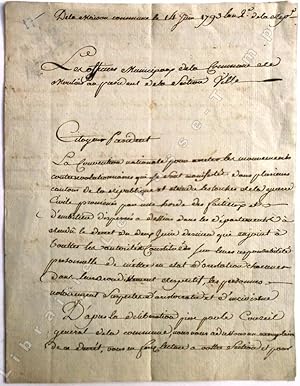 De la Maison commune le 14 Juin 1793 l'an 2e de la Repe
Les officiers Municipaux de la Commune de
Moulins au president de la Section Ville
Citoyen President
La Convention nationale pour arreter les mouvements
contrerevolutionnaires qui se sont manifestés dans plusieurs
cantons de la republique et eteindre les torches de la guerre
Civile promenées par une horde de
dispersés a dessein dans les departements a
etendu le decret du deux Juin dernier qui enjoint a
toutes les autorités Constituées sur leur responsabilité
personnelle de mettre en etat d'arrestation chacune
dans leur arrondissement respectif les personnes
notoirement suspectes d'aristocratie et d'incivisme
D'apres la deliberation prise par le Conseil
general de la commune nous vous adressons un exemplaire
de ce Decret, vous en ferez lecture a votre Section et pour